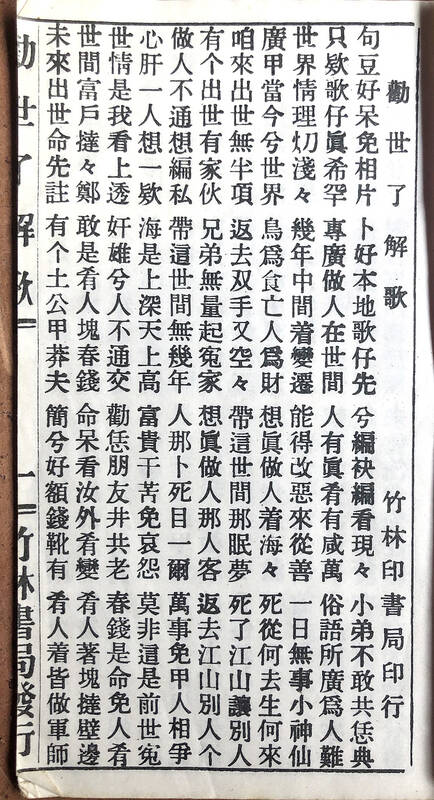 勸世了解歌 竹林印書局印行
句豆好呆免相片 卜好本地歌仔先 兮編袂編看現々 小弟不敢共恁典
只欵歌仔眞希罕 專廣做人在世間 人有眞肴有咸萬 俗語所廣爲人難
世界情理切淺々 幾年中間着變遷 能得改惡來從善 一日無事小神仙
廣甲當今兮世界 鳥爲食亡人爲財 想眞做人着海々 死從何去生何來
咱來出世無半項 返去双手又空々 帶這世間那眠夢 死了江山讓別人
有个出世有家伙 兄弟無量起冤家 想眞做人那人客 返去江山別人个
做人不通想編私 帶這世間無幾年 人那卜死日一爾 萬事免甲人相爭
心肝一人想一欵 海是上深天上高 富貴干苦免哀怨 莫非這是前世冤
世情是我看上透 奸雄兮人不通交 勸恁朋友井共老 春錢是命免人肴
世間富戶撻々鄭 敢是肴人塊春錢 命呆看汝外肴變 肴人著塊撻壁邊
未來出世命先註 有个土公甲莽夫 簡兮好額錢靴有 肴人着皆做軍師
勸世了解歌 一 竹林書局發行